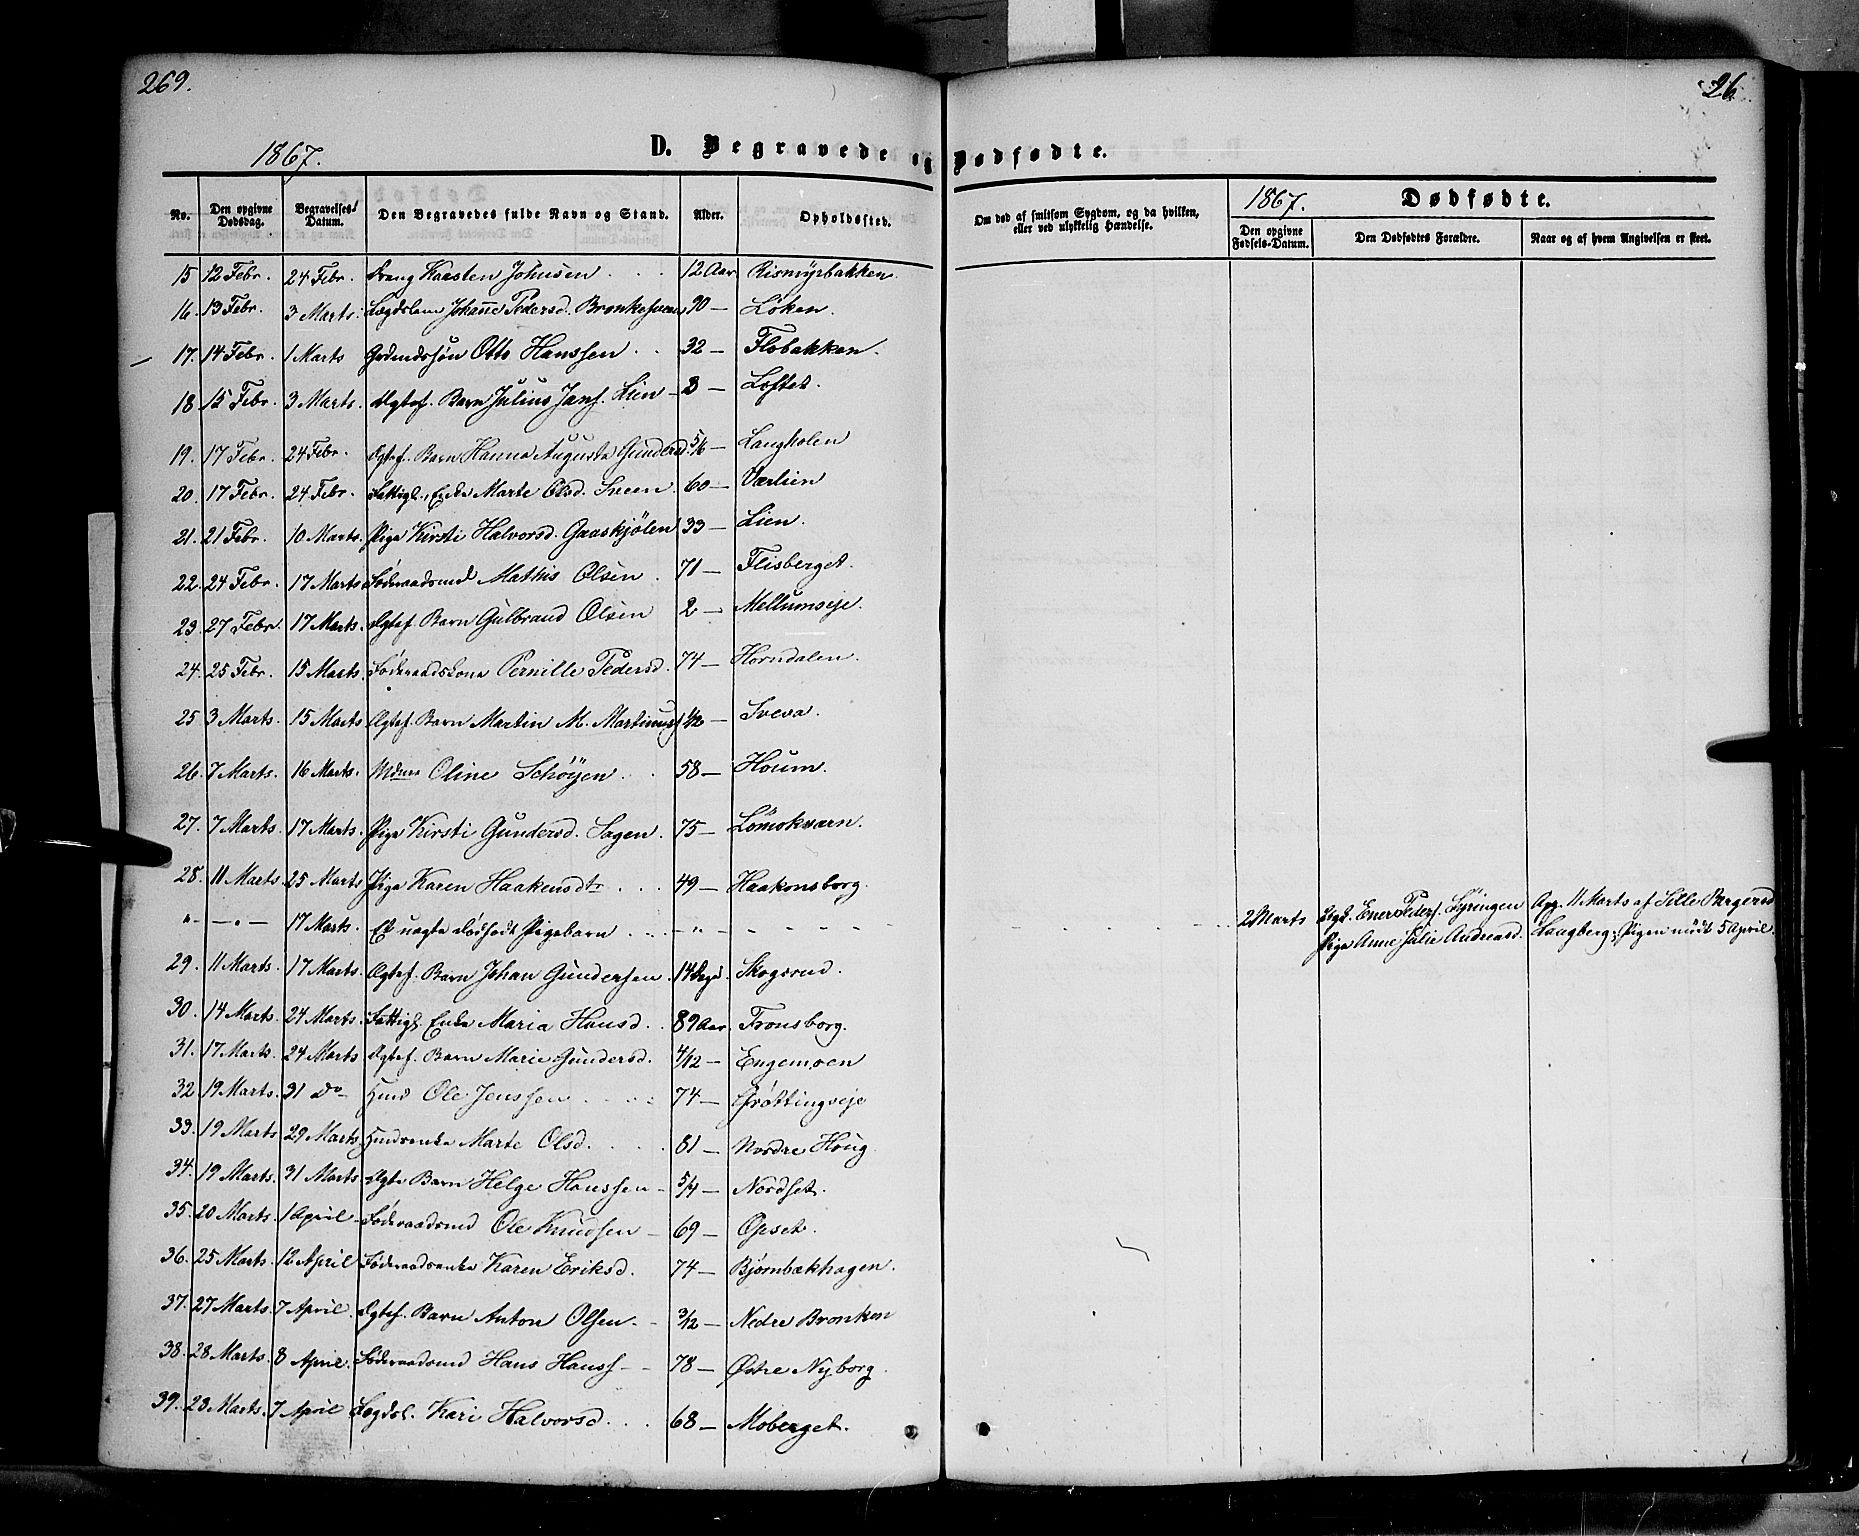 269.
26
1867.
D. Begravede og Dødfødte.
No. Den opgivne Dødsdag. Begravelses-Datum. Den Begravedes fulde Navn og Stand. Alder. Opholdssted. Om død af smitsom Sygdom, og da hvilken, eller ved ulykkelig Hændelse. 1867. Dødfødte. Den opgivne Fødsels-Datum. Den Dødfødtes Forældre. Naar og af hvem Angivelsen er skeet.
15 12 Febr. 24 Febr. Dreng Karsten Johnsen 12 Aar Rismyrbakken.
16. 13 Febr. 3 Marts. Lægdslem Johanne Pedersd. Bronkesveen 90 — Löken.
17. 14 Febr. 1 Marts Grdmdssön Otto Hanssen 32 — Flobakken.
18 15 Febr. 3 Marts. Ægtef. Barn Julius Jans. Lien 3 — Loftet.
19. 17 Febr. 24 Febr. Ægtef. Barn Hanna Augusta Gundersd. 5/6 — Langholen
20. 17 Febr. 24 Febr. Fattigl., Enke Marte Olsd. Sveen 60 — Værlien
21. 21 Febr. 10 Marts. Pige Kirsti Halvorsd. Gaaskjölen 33 — Lien.
22. 24 Febr. 17 Marts Föderaadsmd Mathis Olsen 71 — Flisberget.
23. 27 Febr. 17 Marts. Ægtef. Barn Gulbrand Olsen 2 — Mellumseje.
24. 25 Febr. 15 Marts. Föderaadskone Pernille Pedersd. 74 — Horndalen.
25 3 Marts. 15 Marts Ægtef. Barn Martin M. Martinus. 1/12 — Sveva.
26. 7 Marts. 16 Marts. Mdme Oline Schöyen 58 — Houm.
27. 7 Marts. 17 Marts. Pige Kirsti Gundersd. Sagen. 75 — Lömokværn.
28. 11 Marts. 25 Marts Pige Karen Haakensdtr 49 — Haakonsborg.
" — " — 17 Marts. Et uægte dödfödt Pigebarn — " — 2 Marts Ugk. Ener Peders. Syringen Pige Anne Julie Andreasd. Ang. 11 Marts af Sille Bergersd Langberg; Pigen mödt 5 April.
29. 11 Marts. 17 Marts. Ægtef. Barn Johan Gundersen. 14 Dage Skogsrud.
30. 14 Marts. 24 Marts. Fattigl. Enke Maria Hansd. 89 Aar. Fronsborg.
31. 17 Marts. 24 Marts Ægtef. Barn Marie Gundersd. 4/12 — Engemoen
32 19 Marts. 31 Do Hmd Ole Jenssen 74 — Gröttingseje
33. 19 Marts 29 Marts. Hmdsenke Marte Olsd. 81 — Nordre Houg
34. 19 Marts. 31 Marts. Ægte Barn Helge Hanssen 5/4 — Nordset.
35. 20 Marts. 1 April. Föderaadsmd Ole Knudsen 69 — Opset.
36. 25 Marts. 12 April Föderaadsenke Karen Eriksd. 74 — Bjørnbækhagen.
37. 27 Marts. 7 April. Ægtef. Barn Anton Olsen. 3/12 — Nedre Bronken
38. 28 Marts. 8 April. Föderaadsmd Hans Hanss. 78 — Østre Nyborg.
39. 28 Marts. 7 April Lægdsl. Kari Halvorsd. 68 — Moberget.